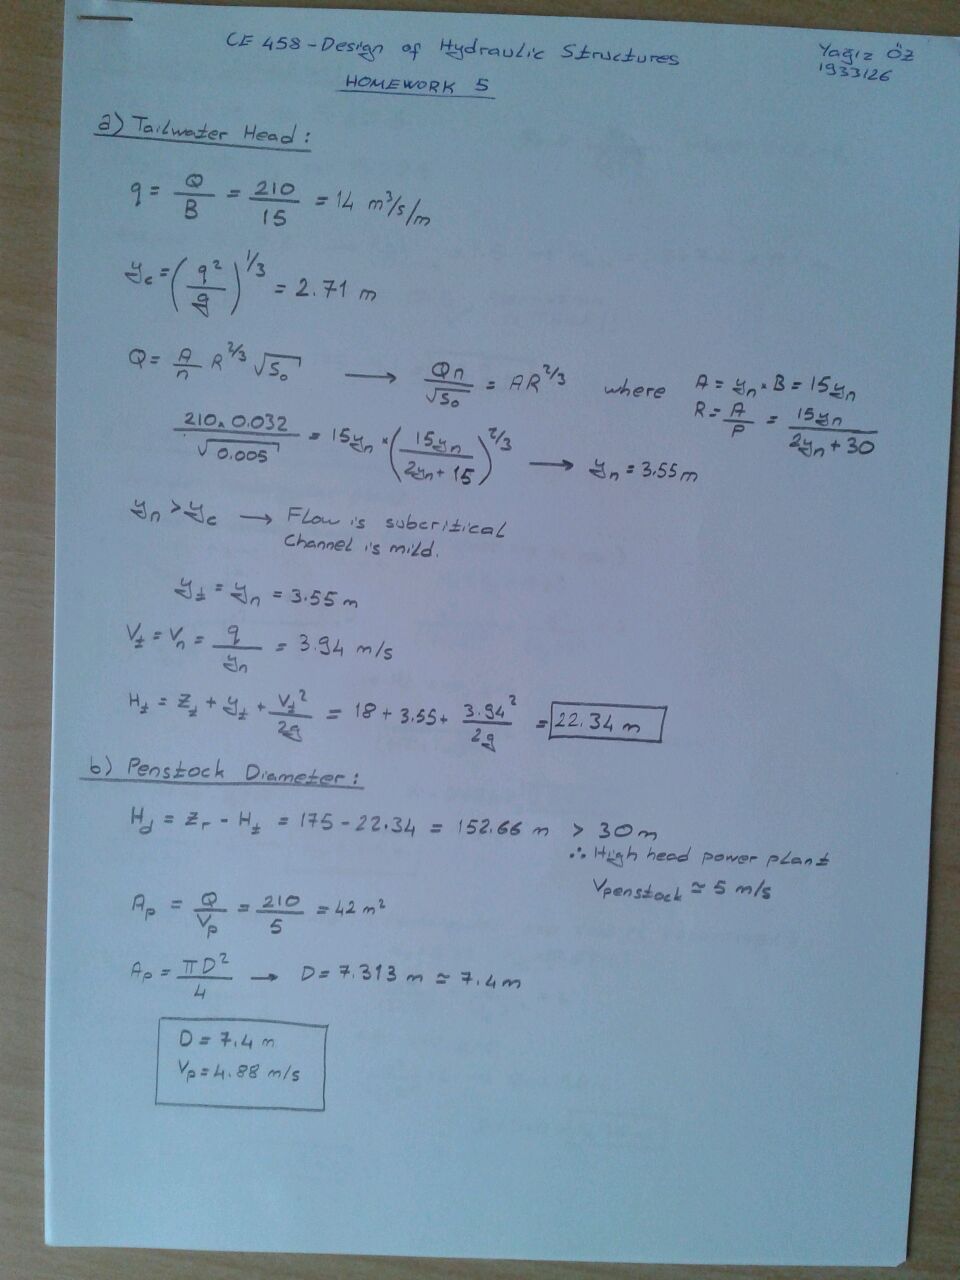 CE 458-Design of Hydraulic Structures
Yağız ÖZ
1933126
HOMEWORK 5
a) Tailwater Head:
q = Q/B = 210/15 = 14 m³/s/m
y_c = (q²/g)^1/3 = 2.71 m
Q = A/n R^2/3 √S₀ → Qn/√S₀ = AR^2/3 where A = y_n × B = 15y_n
R = A/P = 15y_n/(2y_n + 30)
210 × 0.032/√0.005 = 15y_n × (15y_n/(2y_n + 15))^2/3 → y_n = 3.55 m
y_n > y_c → Flow is subcritical
Channel is mild.
y_t = y_n = 3.55 m
V_t = V_n = q/y_n = 3.94 m/s
H_t = z_t + y_t + V_t²/2g = 18 + 3.55 + 3.94²/2g = 22.34 m
b) Penstock Diameter:
H_d = z_r - H_t = 175 - 22.34 = 152.66 m > 30 m
∴ High head power plant
V_penstock ≈ 5 m/s
A_p = Q/V_p = 210/5 = 42 m²
A_p = πD²/4 → D = 7.313 m ≈ 7.4 m
D = 7.4 m
V_p = 4.88 m/s